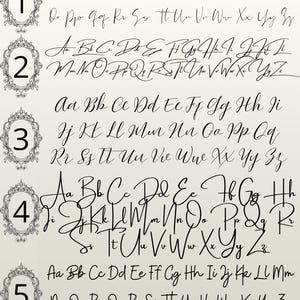 1
Oo Pp Qq Rr Ss Tt Uu Vv Ww Xx Yy Zz
2
Aa Bb Cc Dd Ee Ff Gg Hh Ii Jj Kk Ll
Mm Nn Oo Pp Qq Rr Ss Tt Uu Vv Ww Xx Yy Zz
3
Aa Bb Cc Dd Ee Ff Gg Hh Ii
Jj Kk Ll Mm Nn Oo Pp Qq
Rr Ss Tt Uu Vv Ww Xx Yy Zz
4
Aa Bb Cc Dd Ee Ff Gg Hh
Ii Jj Kk Ll Mm Nn Oo Pp Qq Rr
Ss Tt Uu Vv Ww Xx Yy Zz
5
Aa Bb Cc Dd Ee Ff Gg Hh Ii Jj Kk Ll Mm